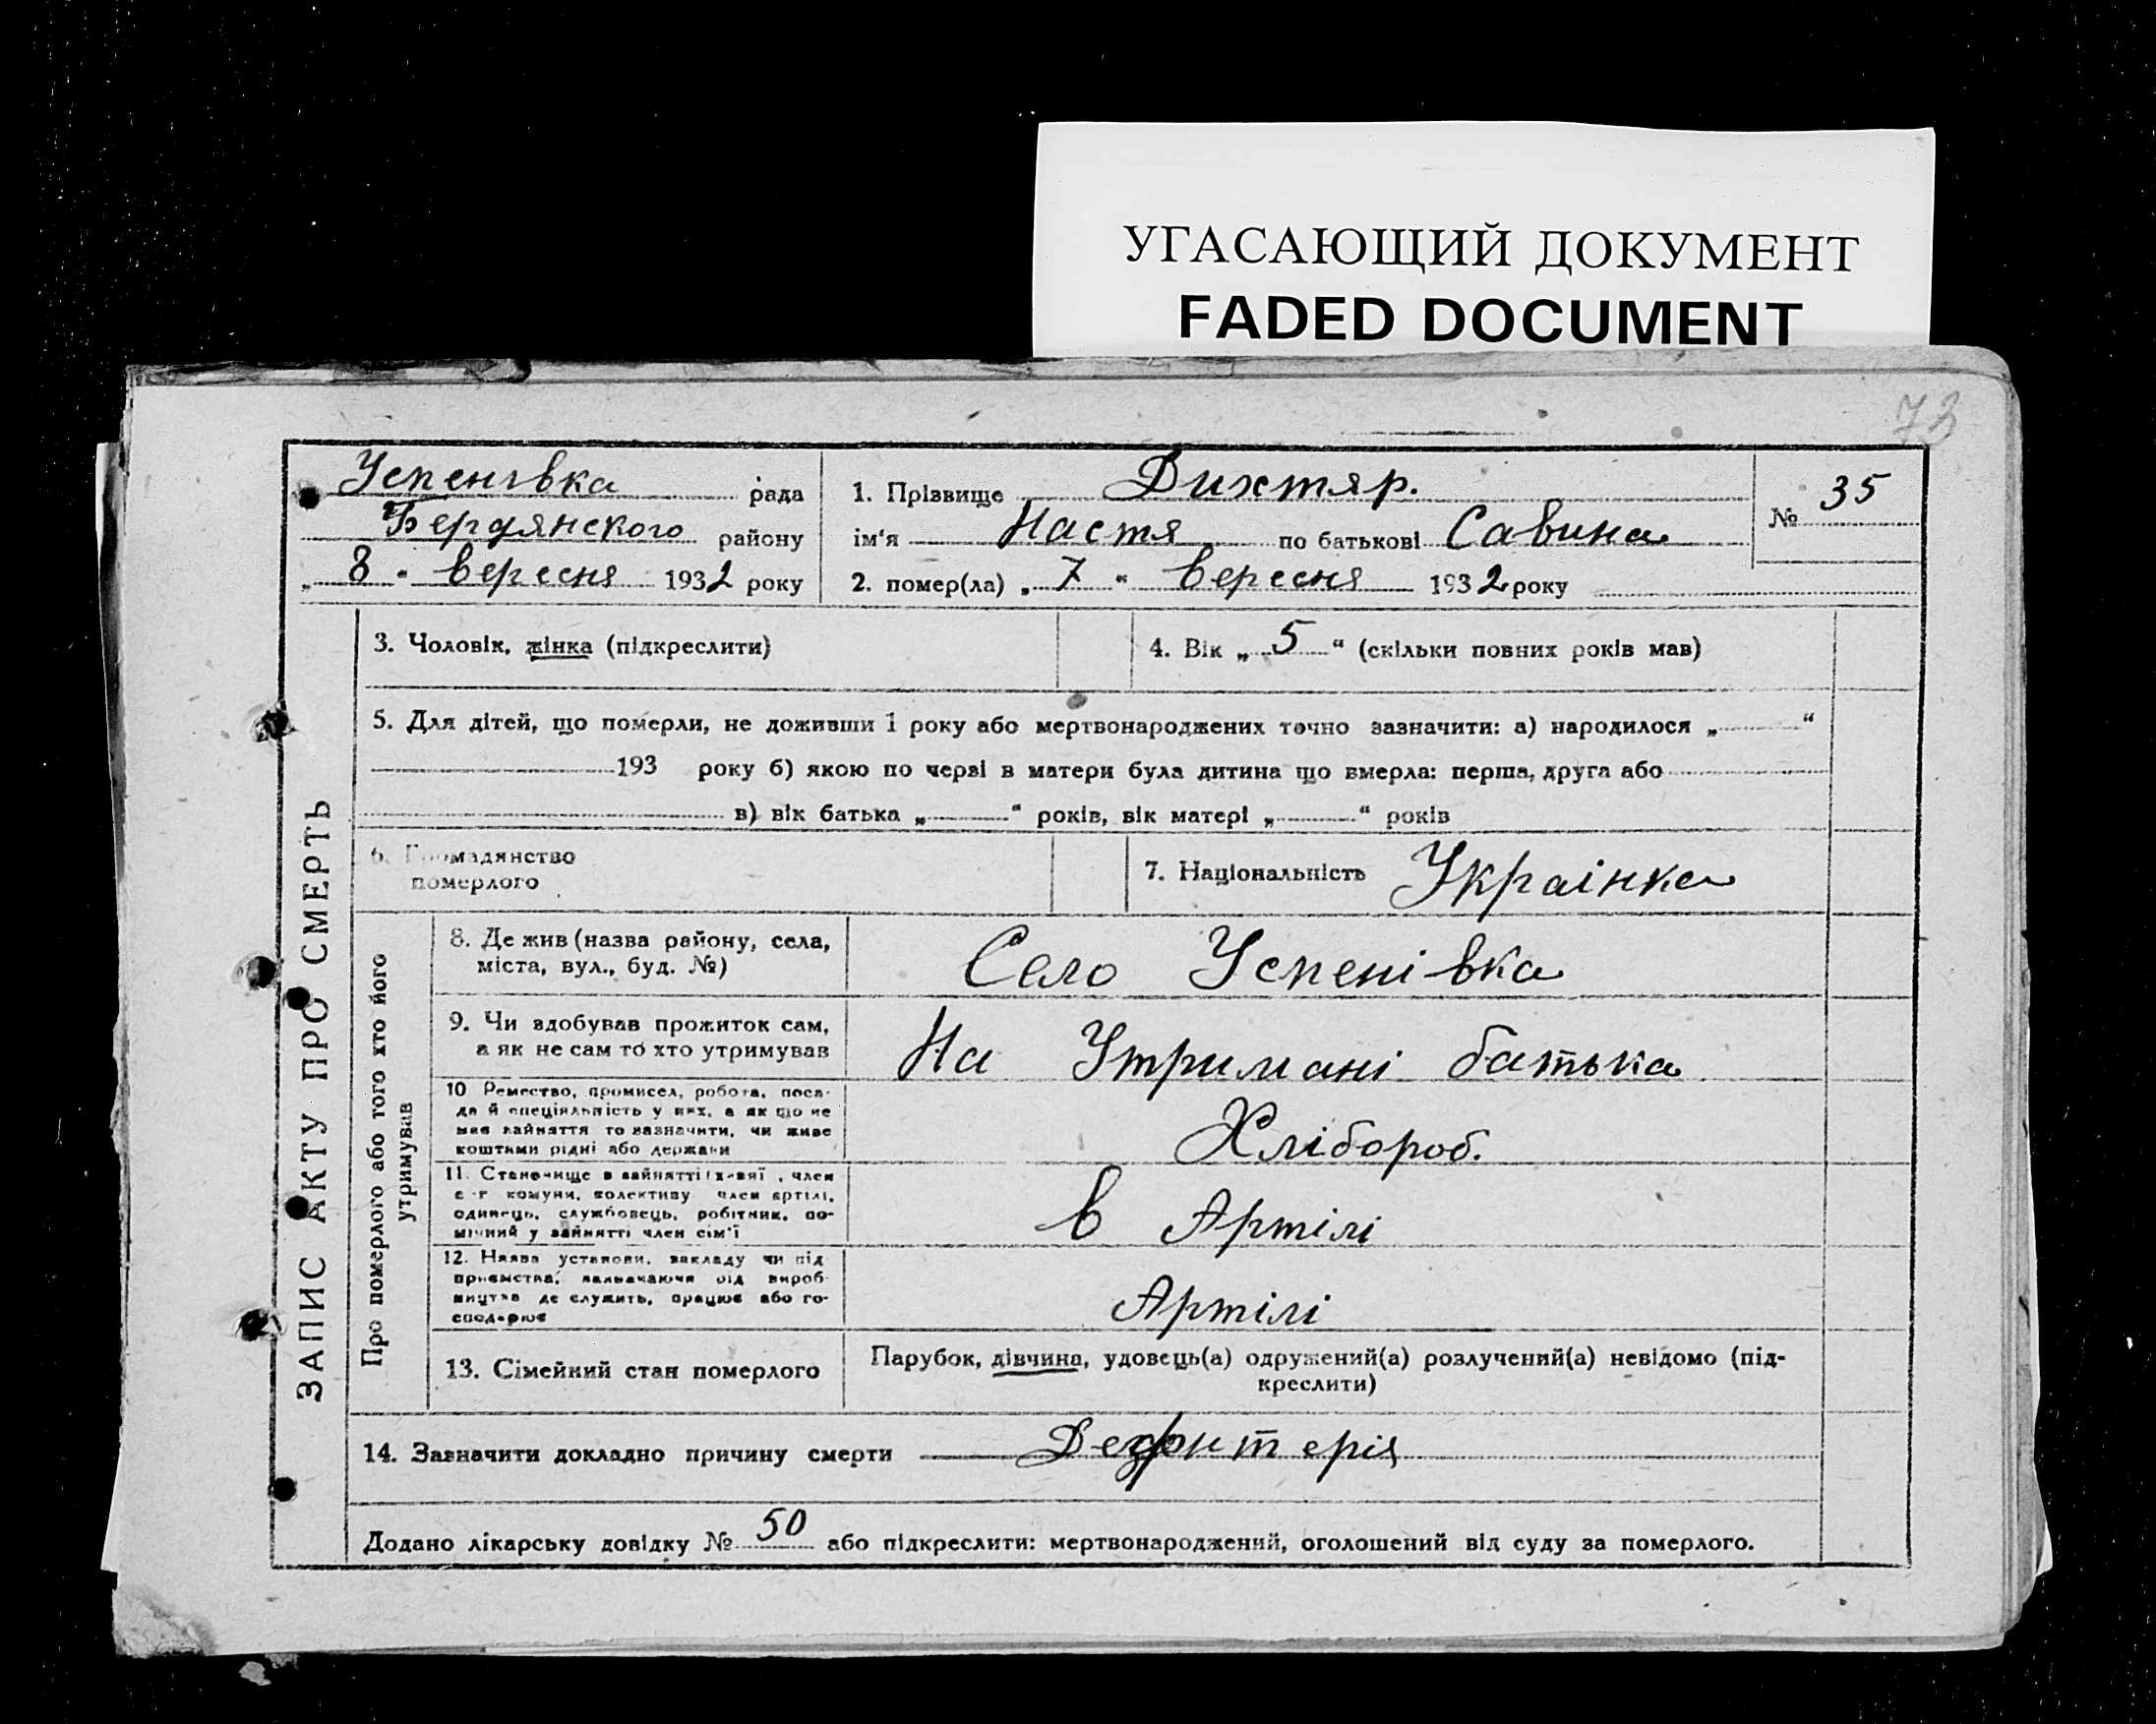 УГАСАЮЩИЙ ДОКУМЕНТ
FADED DOCUMENT
73
Успенівка рада
Бердянского району
„ 8 " вересня 1932 року
1. Прізвище Дихтяр.
ім'я Настя по батькові Савина
2. помер(ла) „ 7 " вересня 1932 року
№ 35
ЗАПИС АКТУ ПРО СМЕРТЬ
3. Чоловік, жінка (підкреслити)
4. Вік „ 5 " (скільки повних років мав)
5. Для дітей, що померли, не доживши 1 року або мертвонароджених точно зазначити: а) народилося „ "
193 року б) якою по черзі в матери була дитина що вмерла: перша, друга або
в) вік батька „ " років, вік матері „ " років
6. Громадянство
померлого
7. Національність Украінка
Про померлого або того хто його
утримував
8. Де жив (назва району, села,
міста, вул., буд. №)
Село Успенівка
9. Чи здобував прожиток сам,
а як не сам то хто утримував
На Утримані батька
10 Ремество, промисел, робота, поса-
да й спеціяльність у них, а як що не
мав зайняття то зазначити, чи живе
коштами рідні або держави
Хлібороб.
11. Становище в зайнятті член
с-г комуни, колективу член артілі,
одинець, службовець, робітник, по-
мічний у зайнятті член сім'ї
в Артілі
12. Назва установи, закладу чи під
приємства, зазначаючи від вироб-
ництва де служить, працює або го-
сподарює
Артілі
13. Сімейний стан померлого
Парубок, дівчина, удовець(а) одружений(а) розлучений(а) невідомо (під-
креслити)
14. Зазначити докладно причину смерти Дефитерія
Додано лікарську довідку № 50 або підкреслити: мертвонароджений, оголошений від суду за померлого.